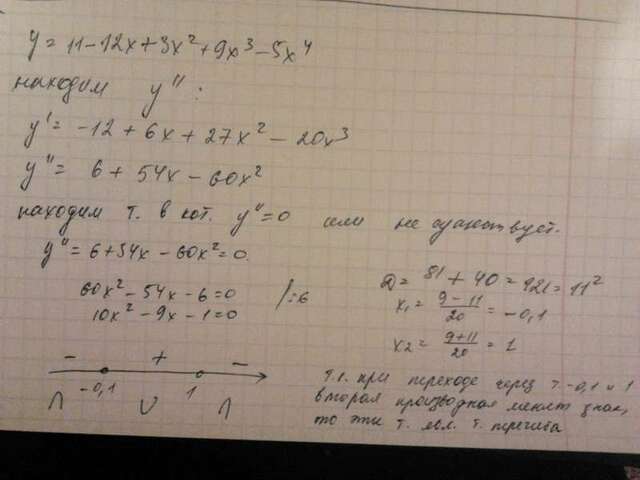 y = 11 - 12x + 3x² + 9x³ - 5x⁴
находим y'' :
y' = -12 + 6x + 27x² - 20x³
y'' = 6 + 54x - 60x²
находим т. в кот. y''=0 или не существует.
y'' = 6 + 54x - 60x² = 0.
60x² - 54x - 6 = 0 /:6
10x² - 9x - 1 = 0
D = 81 + 40 = 121 = 11²
x₁ = (9-11)/20 = -0,1
x₂ = (9+11)/20 = 1
- + -
-0,1 1
∩ ∪ ∩
т.к. при переходе через т. -0,1 и 1
вторая производная меняет знак,
то эти т. явл. т. перегиба